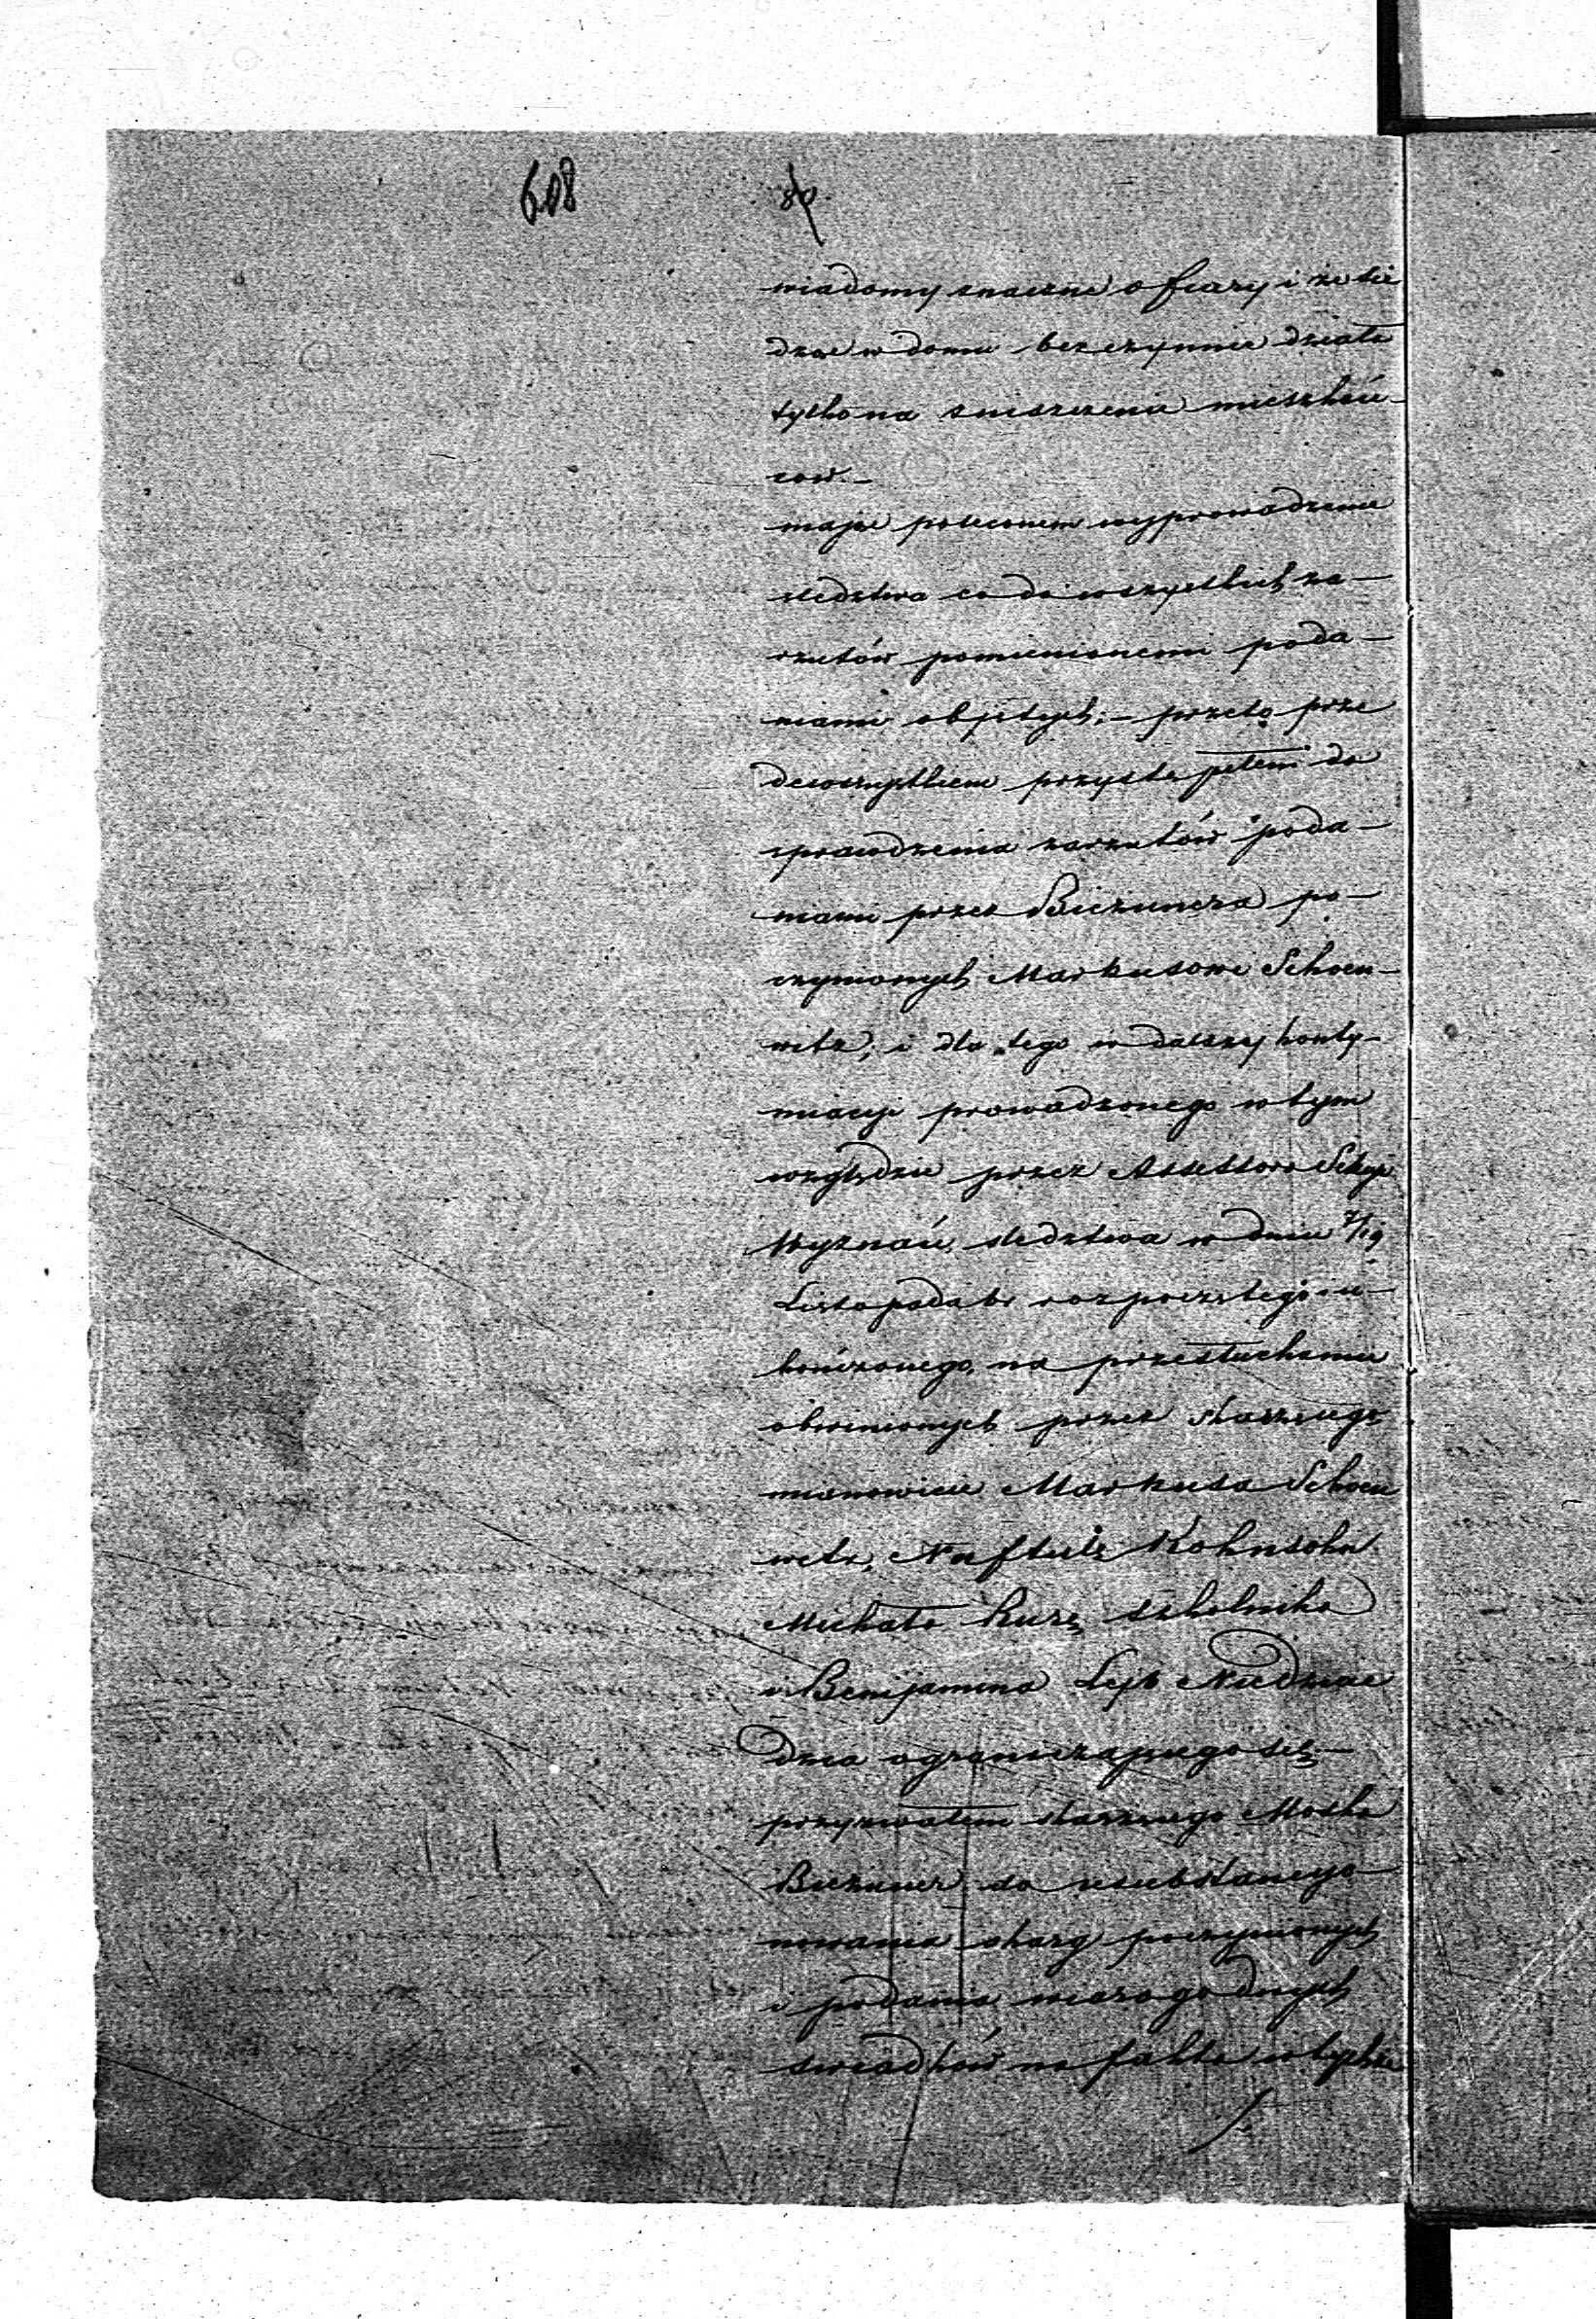 608
wiadomy znaczne ofiary i że sie
dząc w domu bezczynnie działa
tylko na zniszczenie mieszkań-
ców.—
mając poleconem wyprowadzenie
śledztwa co do wszystkich za-
rzutów pomienionemi poda-
niami objętych;— przeto prze
dewszystkiem przystąpiłem do
sprawdzenia zarzutów poda-
niami przez Bieżunera po-
czynionych Markusowi Schoen-
witz, i dla tego w dalszej konty-
nuacyi prowadzonego w tym
względzie przez Assessora Sekcyi
Wyznań, śledztwa w dniu 7/19
Listopada br rozpoczętego i u-
kończonego, na przesłuchaniu
obwinionych przez skarzącego
mianowicie Markusa Schoen
witz, Naftule Kohnsohn
Michała Kurz, szkolnika
i Benjamina Lejb Niedzwie
dzia ograniczającego się,—
przyzwałem skarzącego Moska
Bieżuner do usubstancyo-
nowania skarg poczynionych
i podania wiarogodnych
świadków na fakta w tychże